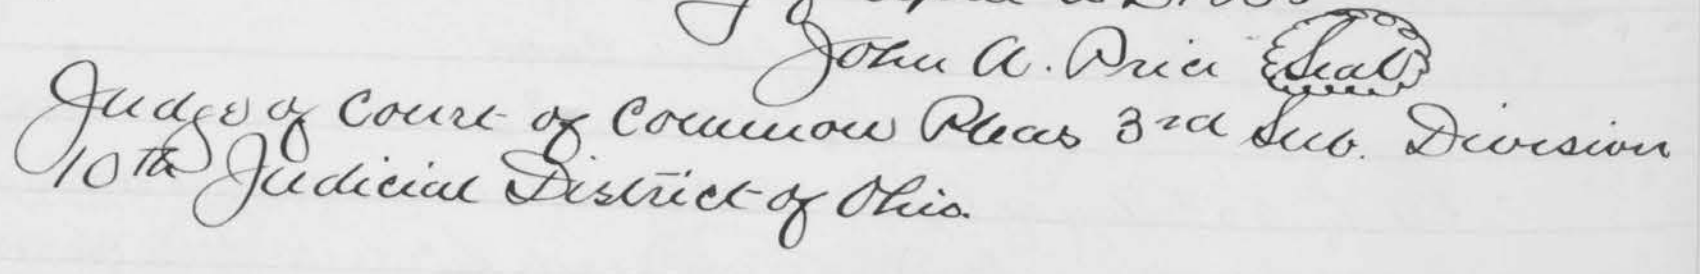 John A. Price Seal
Judge of Court of Common Pleas 3rd Sub. Division
10th Judicial District of Ohio.